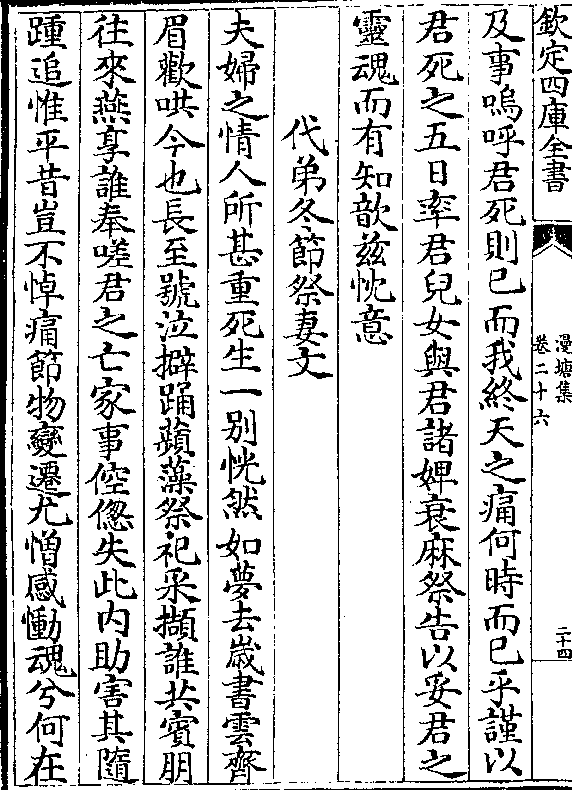 欽定四庫全書
漫塘集
卷二十六
二十四
及事嗚呼君死則已而我終天之痛何時而已乎謹以
君死之五日率君兒女與君諸婢衰麻祭告以妥君之
靈魂而有知歆兹忱意
代弟冬節祭妻文
夫婦之情人所甚重死生一别恍然如夢去嵗書雲齊
眉歡哄今也長至號泣擗踊蘋藻祭祀采擷誰共賓朋
往來燕享誰奉嗟君之亡家事倥傯失此内助害其隨
踵追惟平昔豈不悼痛節物變遷尤憎感慟魂兮何在